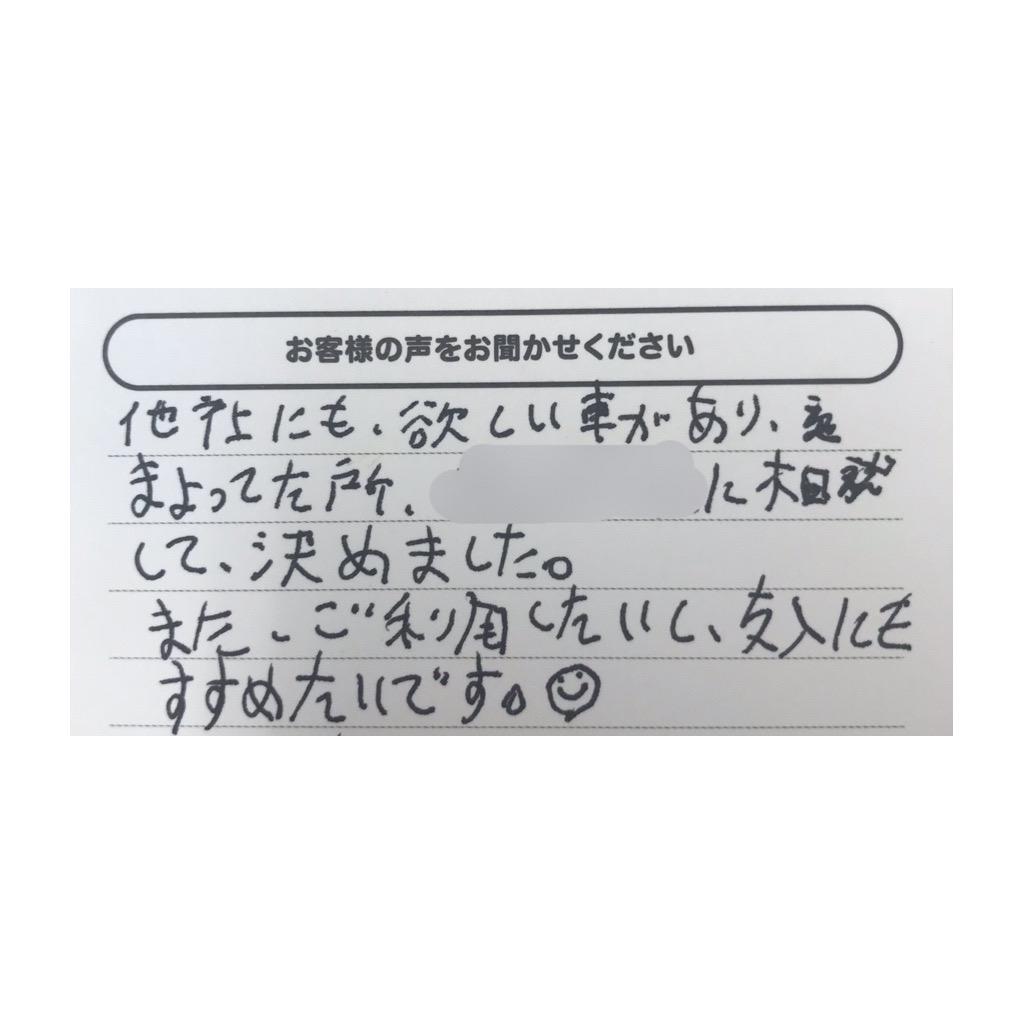 お客様の声をお聞かせください
他社にも、欲しい車があり、
まよってた所、に相談
して、決めました。
また、ご利用したいし、友人にも
すすめたいです。